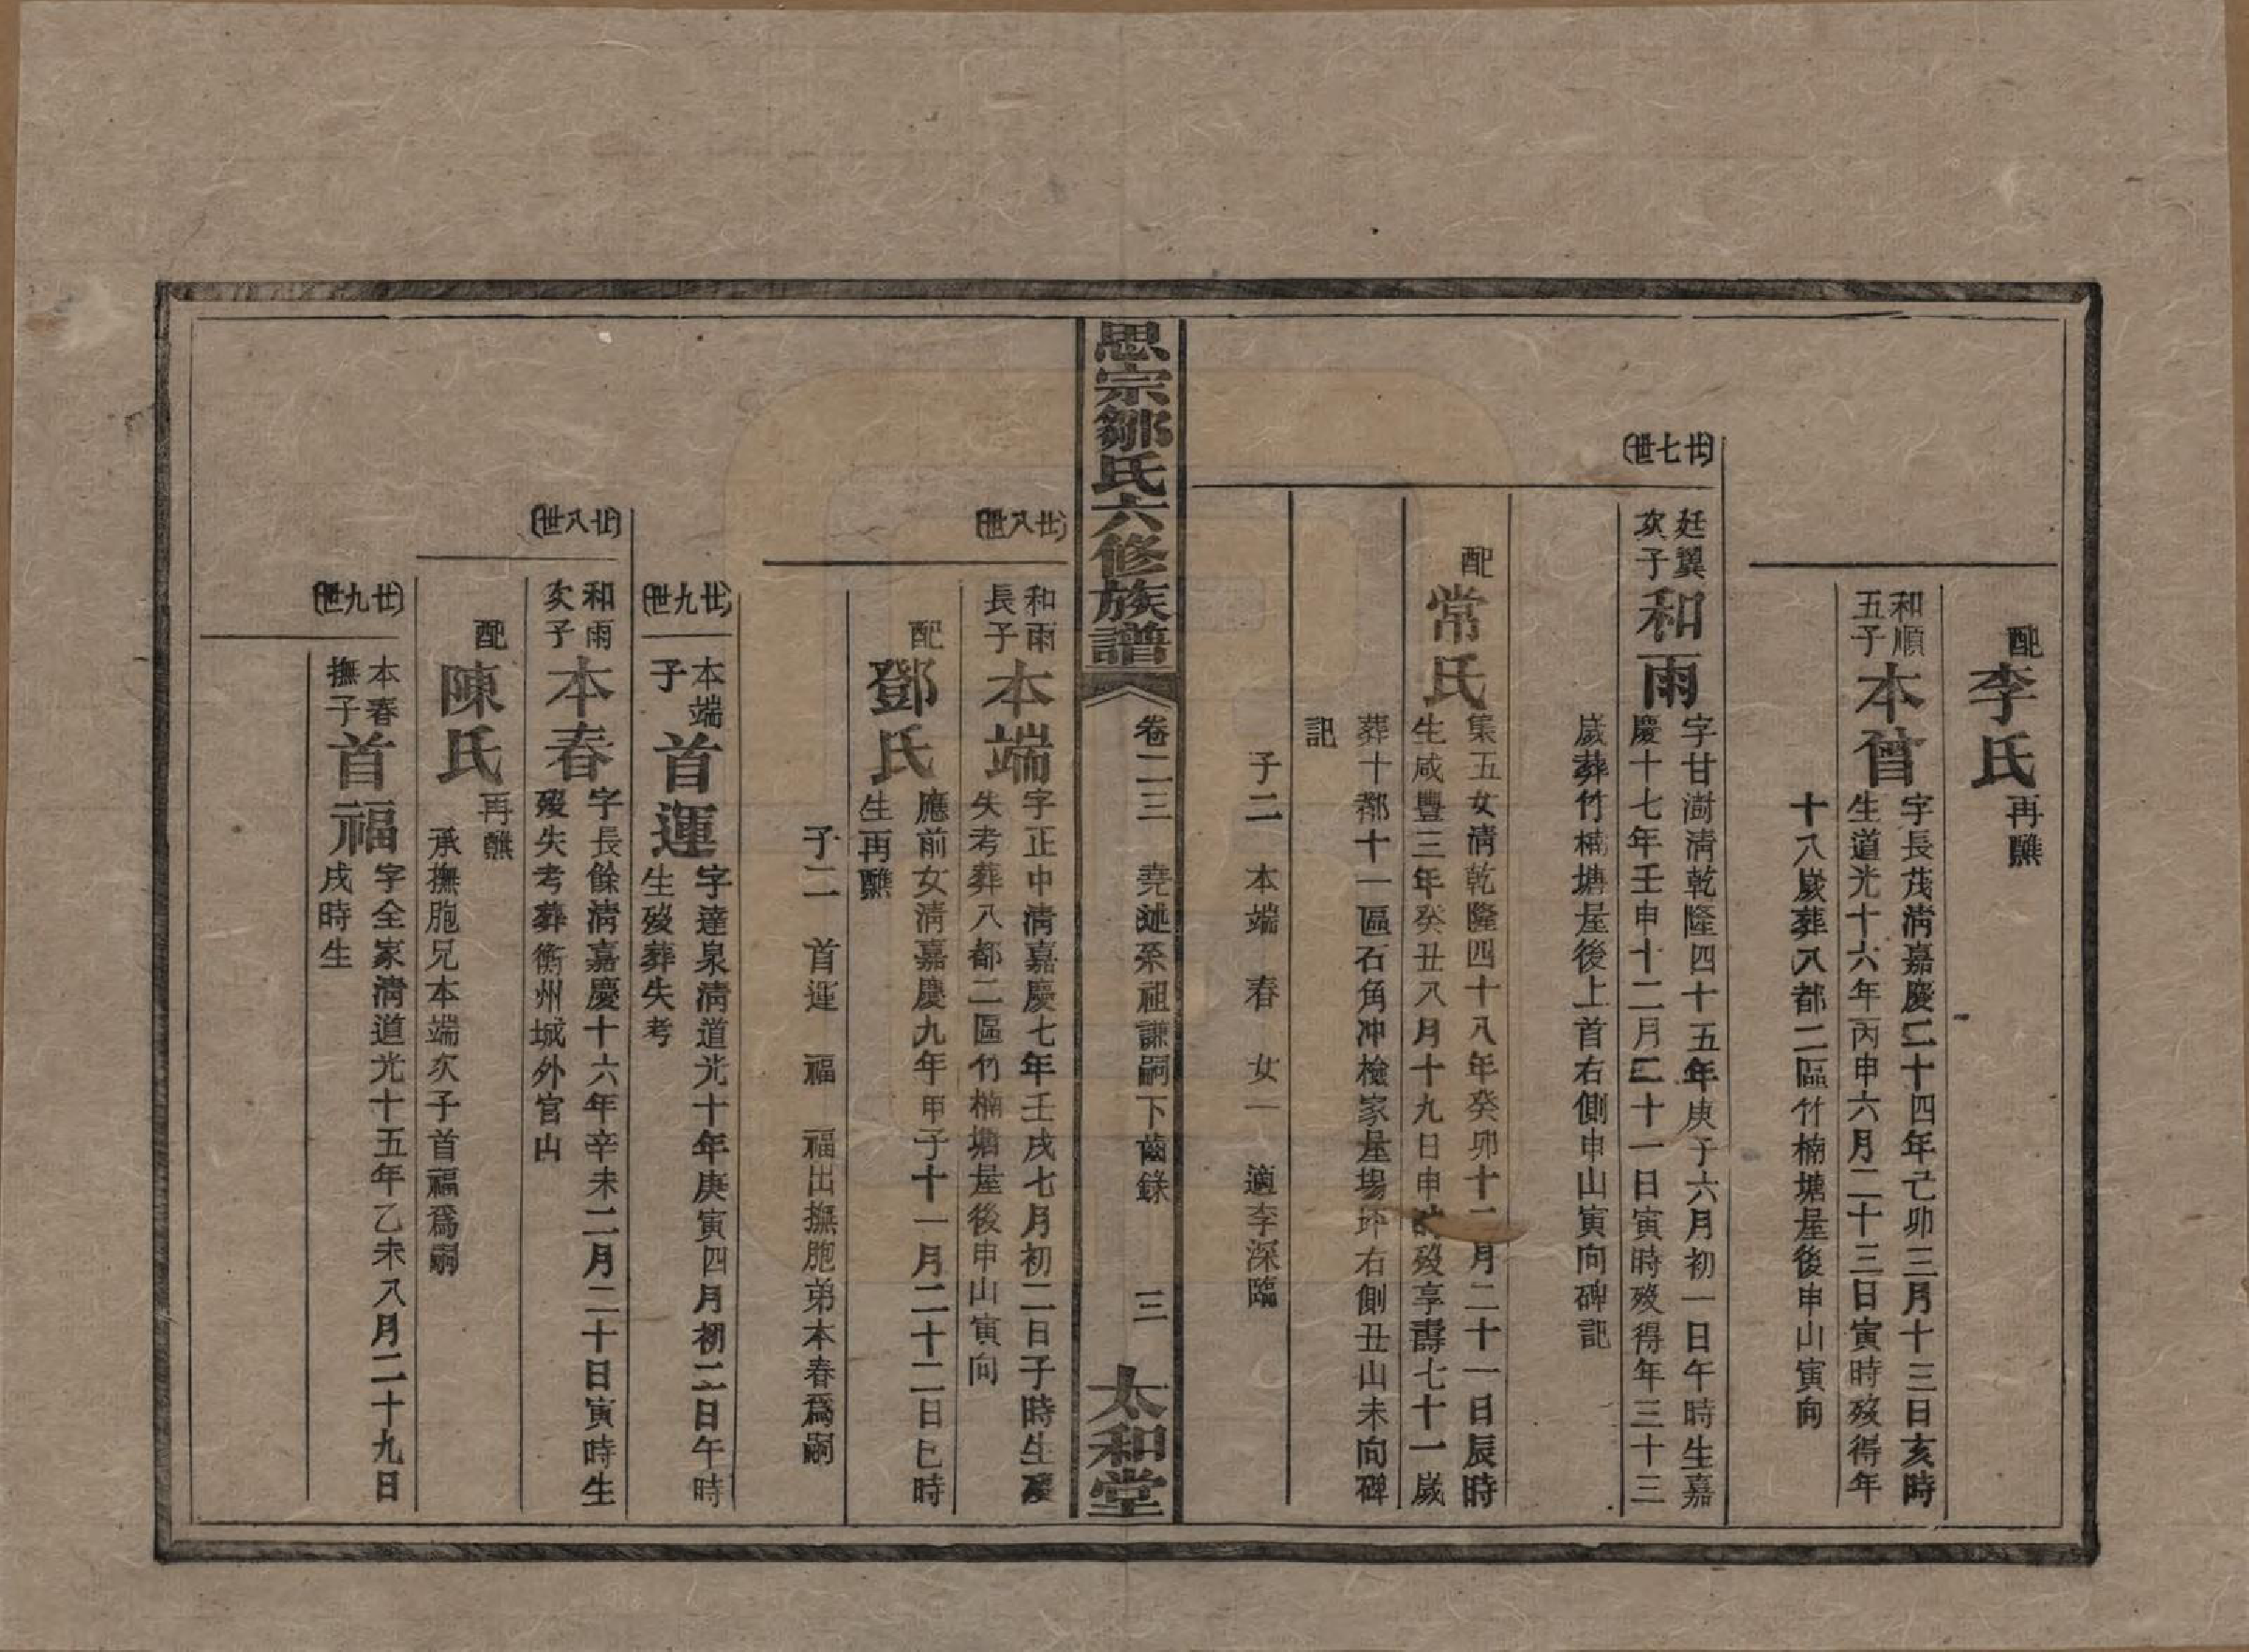 配
李氏
再醮
和順
五子
本曾
字長茂清嘉慶二十四年己卯三月十三日亥時
生道光十六年丙申六月二十三日寅時歿得年
十八歲葬八都二區竹楠塘屋後申山寅向
〔廿七世〕
廷翼
次子
和雨
字甘澍清乾隆四十五年庚子六月初一日午時生嘉
慶十七年壬申十二月二十一日寅時歿得年三十三
歲葬竹楠塘屋後上首右側申山寅向碑記
配
常氏
集五女清乾隆四十八年癸卯十二月二十一日辰時
生咸豐三年癸丑八月十九日申時歿享壽七十一歲
葬十都十一區石角冲檢家屋場坪右側丑山未向碑
記
子二 本端 春 女一 適李深臨
思宗鄒氏六修族譜
卷二三 堯 系祖謙嗣下齒錄 三
太和堂
〔廿八世〕
和雨
長子
本端
字正中清嘉慶七年壬戌七月初二日子時生歿
失考葬八都二區竹楠塘屋後申山寅向
配
鄧氏
應前女清嘉慶九年甲子十一月二十二日巳時
生再醮
子二 首運 福 福出撫胞弟本春爲嗣
〔廿九世〕
本端
子
首運
字達泉清道光十年庚寅四月初二日午時
生歿葬失考
〔廿八世〕
和雨
次子
本春
字長餘清嘉慶十六年辛未二月二十日寅時生
歿失考葬衡州城外官山
配
陳氏
再醮
承撫胞兄本端次子首福爲嗣
〔廿九世〕
本春
撫子
首福
字全家清道光十五年乙未八月二十九日
戌時生